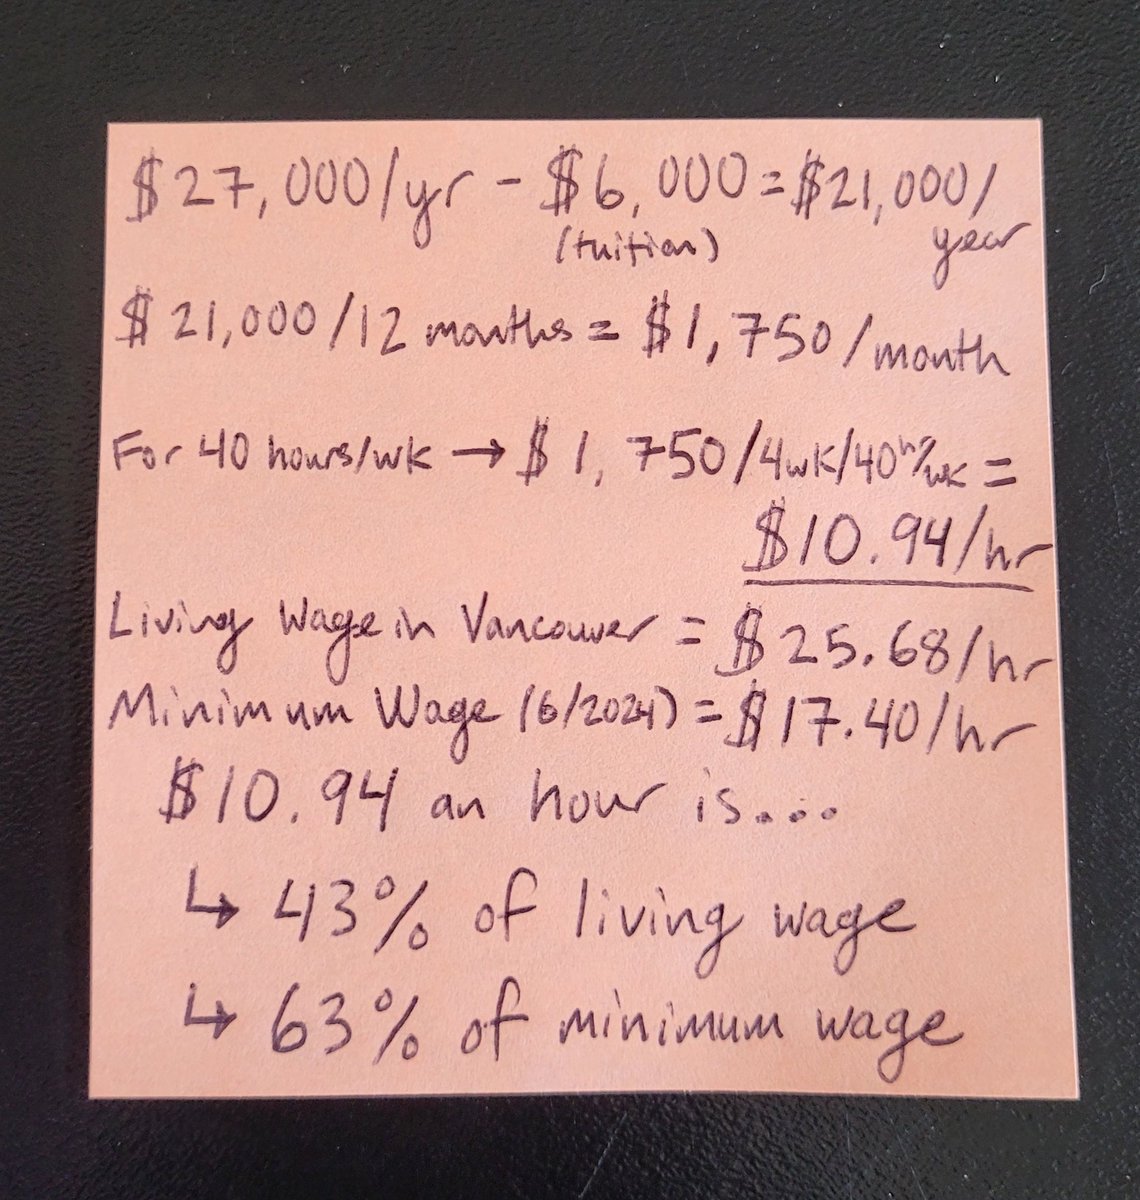 $27,000/yr - $6,000 = $21,000/
(tuition) year
$21,000/12 months = $1,750/month
For 40 hours/wk → $1,750/4wk/40hr/wk =
$10.94/hr
Living Wage in Vancouver = $25.68/hr
Minimum Wage (6/2024) = $17.40/hr
$10.94 an hour is....
↳ 43% of living wage
↳ 63% of minimum wage